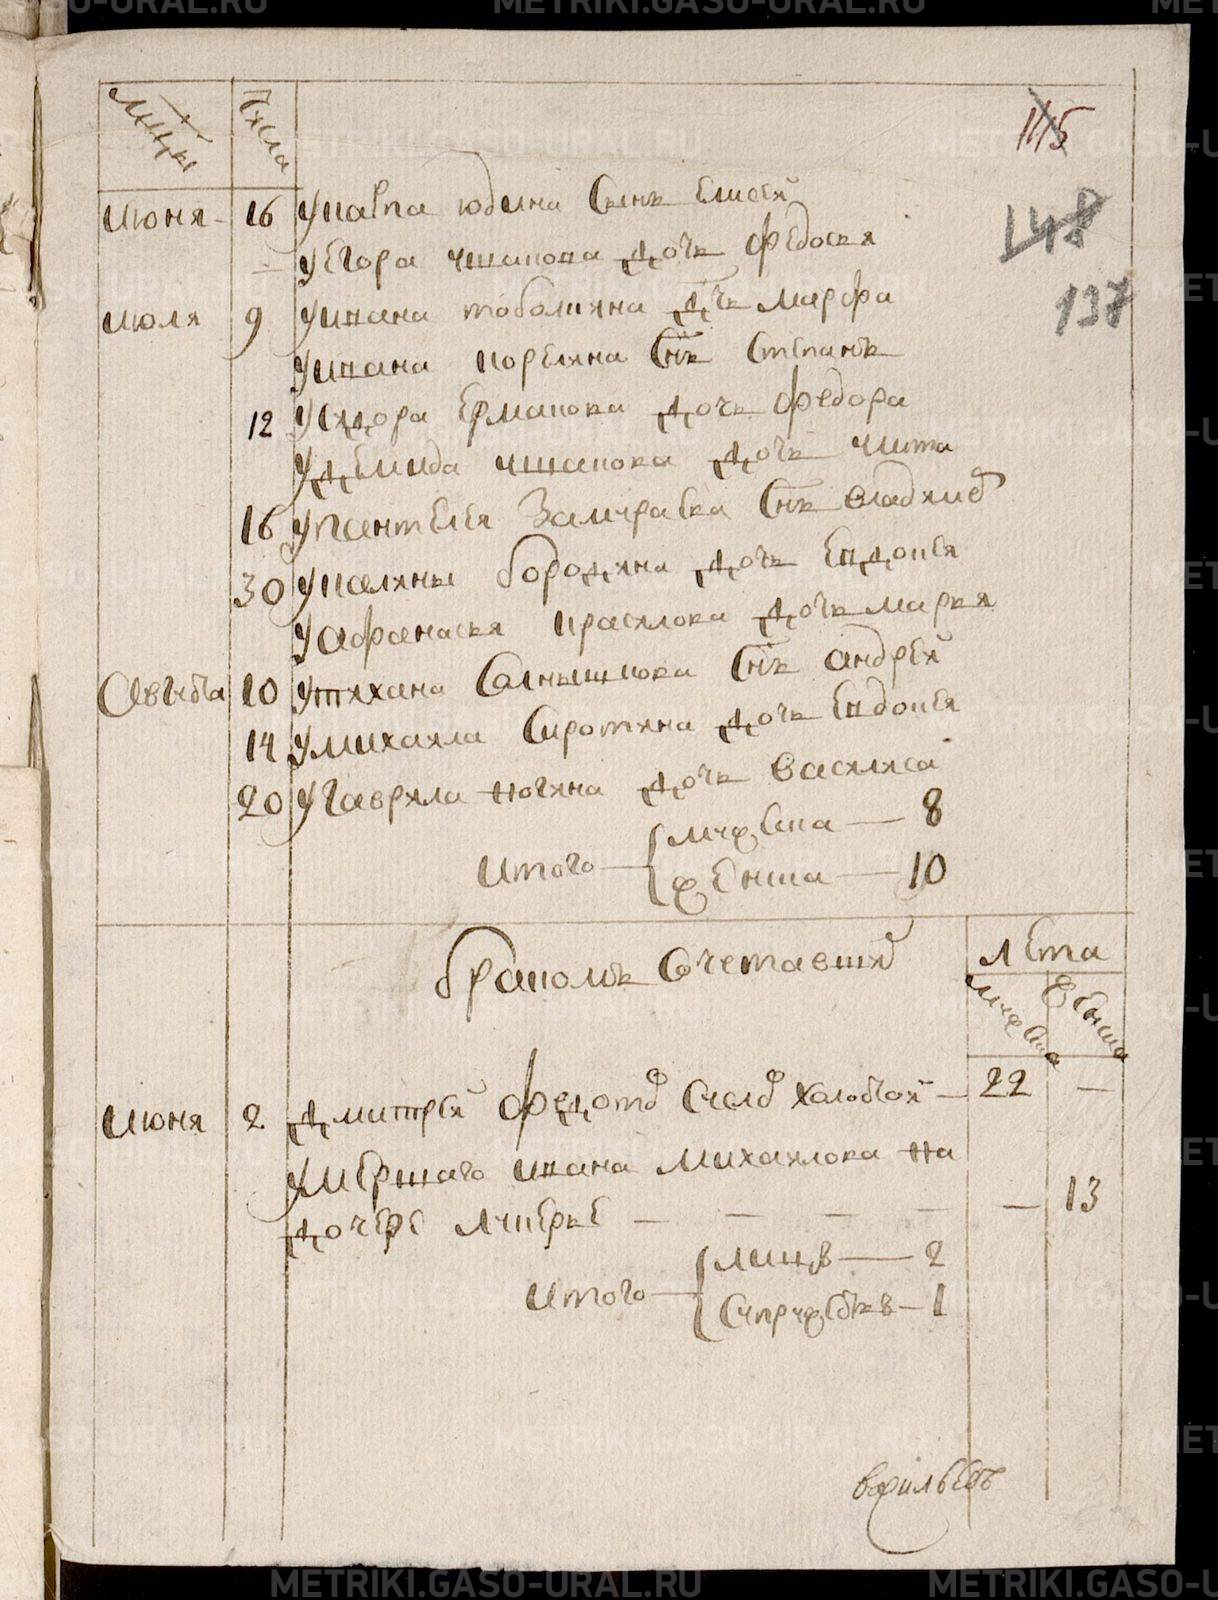 METRIKI.GASO-URAL.RU
Мцы
Числа
115
148
137
Июня - 16 У павла юдина Сынъ Елисей
У Егора чшакова дочь Федосья
Июля 9 У ивана тоболкина дчь марфа
У ивана корелина Снъ Степанъ
12 У Сидора Ермакова дочь Федора
У демида дочь
16 У пантелея Снъ
30 У бородина дочь Евдокея
У афанасья красилова дочь марья
Августа 10 У тихана Солнышкова Снъ андрей
14 У михаила Сиротина дочь Евдокея
20 У гаврила ногина дочь василиса
Итого мужеска — 8
женска — 10
бракомъ Сочетавший
лета
мужеска
женска
Июня 2 дмитрей Федотов холостой — 22 —
умершаго ивана михаилова на
дочере лукерье — — — — — 13
Итого лицъ — 2
Супружествъ — 1
васильевъ